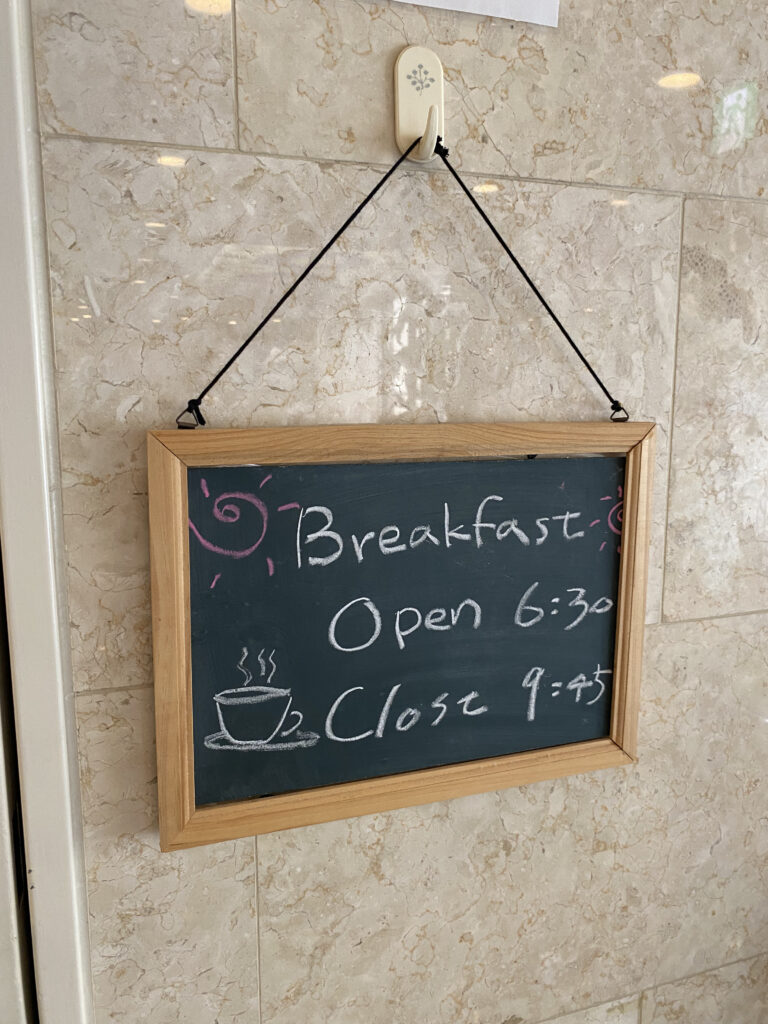 Breakfast
Open 6:30
Close 9:45